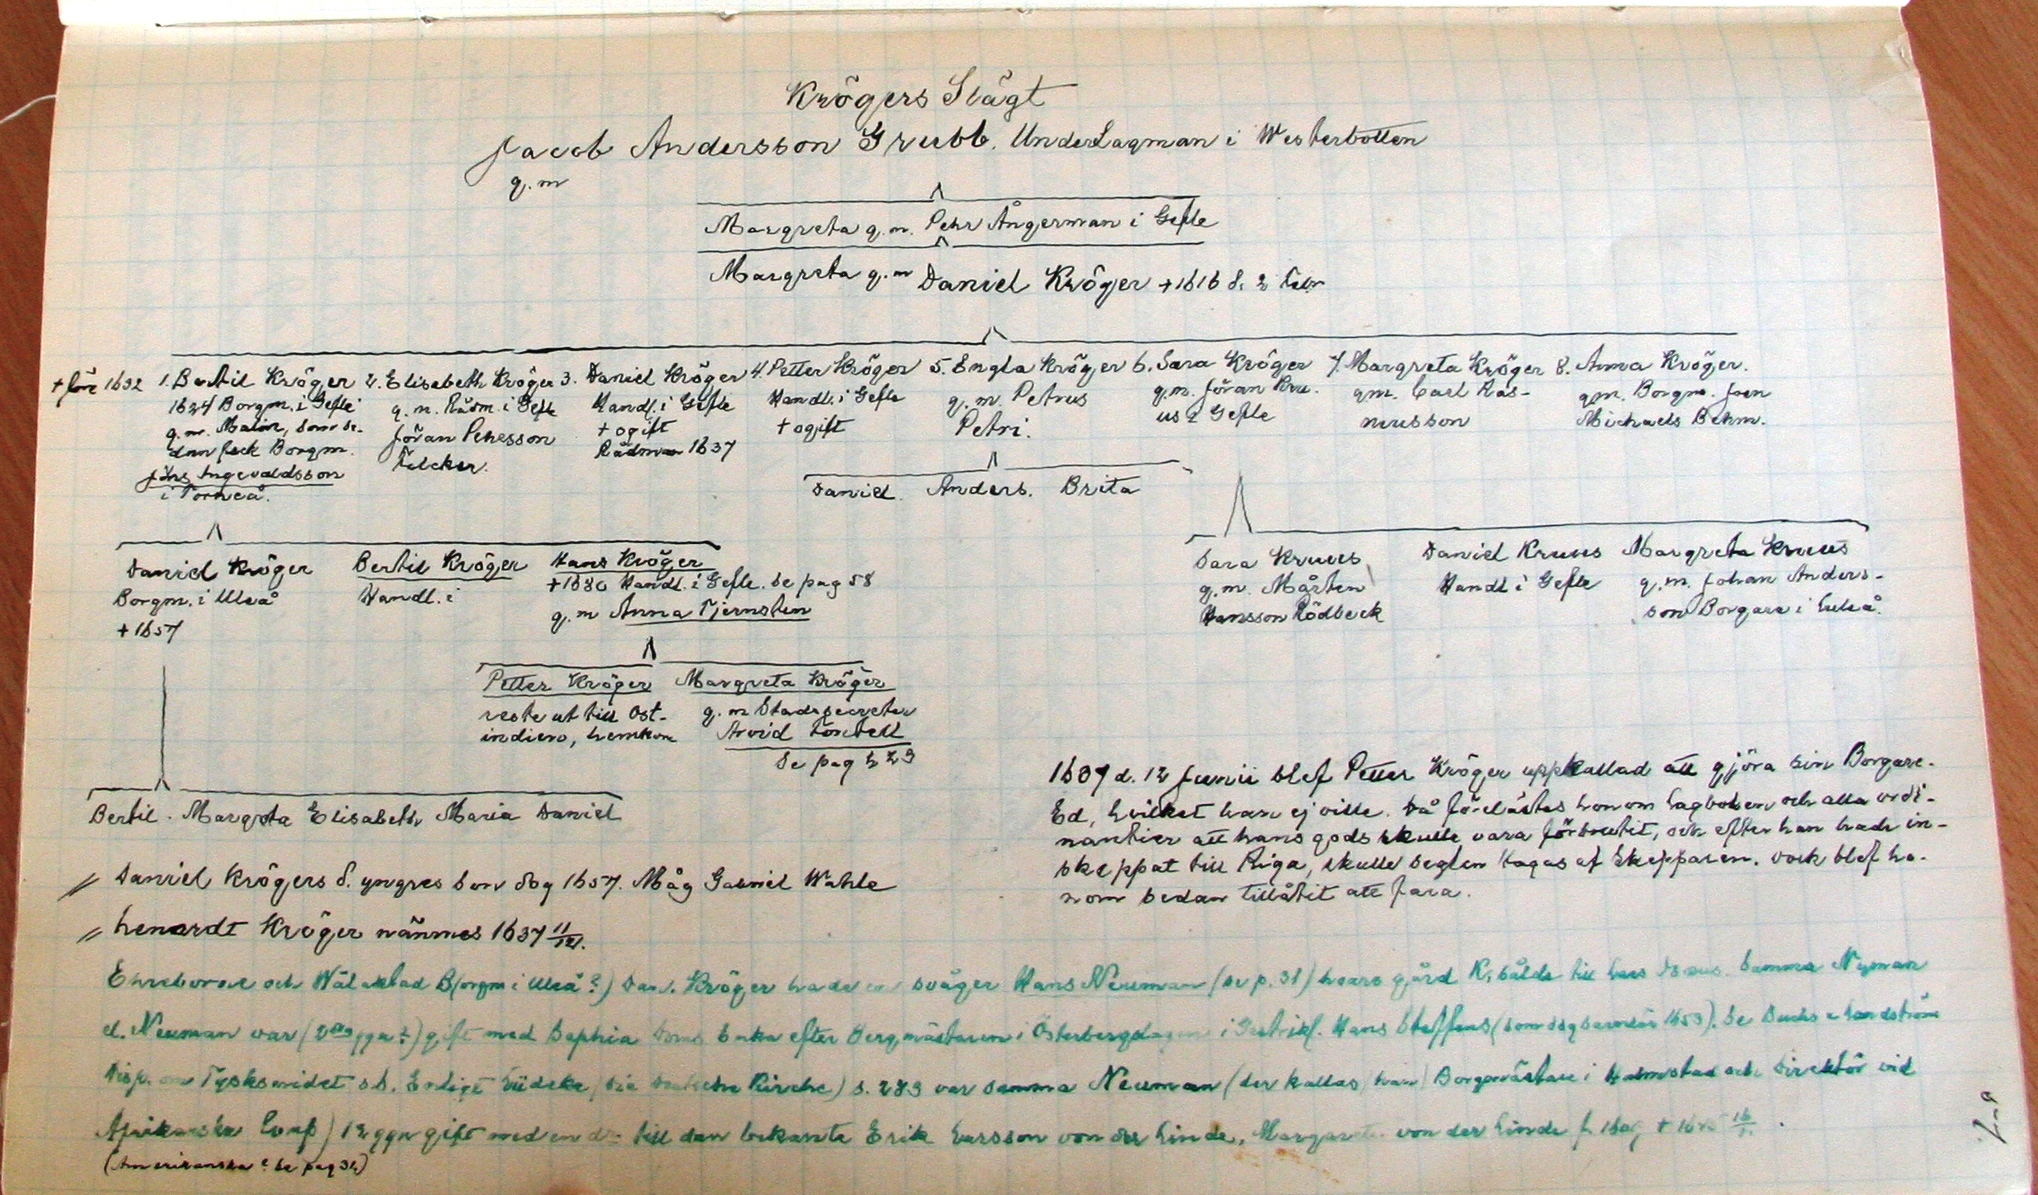 Krögers Slägt
Jacob Andersson Grubb. UnderLagman i Westerbotten
g. m
Margreta g. m. Pehr Ångerman i Gefle
Margreta g. m Daniel Kröger +1616 d. 2 Febr
+ före 1632
1. Bertil Kröger
1624 Borgm. i Gefle
g. m. Malin, som se-
dan feck Borgm.
Jöns Ingevaldsson
i Torneå.
2. Elisabeth Kröger
g. m. Rådm. i Gefle
Jöran Pehesson
Falcker.
3. Daniel Kröger
Handl. i Gefle
+ ogift
Rådman 1637
4. Petter Kröger
Handl. i Gefle
+ ogift
5. Engla Kröger
g. m. Petrus
Petri.
6. Sara Kröger
g. m. Jöran Kru-
us i Gefle
7. Margreta Kröger
gm. Carl Ras-
musson
8. Anna Kröger.
gm. Borgm. Joen
Michaels Behm.
Daniel. Anders. Brita
Daniel Kröger
Borgm. i Uleå
+ 1657
Bertil Kröger
Handl. i
Hans Kröger
+1680 Handl. i Gefle. Se pag 58
g. m Anna Tjernsten
Sara Kruus
g. m. Mårten
Hansson Rödbeck
Daniel Kruus
Handl i Gefle
Margreta Kruus
g. m. Johan Anders-
son Borgare i Luleå.
Petter Kröger
reste ut till Ost-
indien, hemkom
Margreta Kröger
g. m Stadssecreter
Arvid Forstell
Se pag
Bertil. Margreta Elisabeth Maria Daniel
1637 d. 12 Junii blef Petter Kröger uppkallad att gjöra sin Borgare-
Ed, hvilket han ej ville. Då förelästes honom Lagboken och alla ordi-
nantier att hans gods skulle vara förbrutit, och efter han hade in-
skeppat till Riga, skulle seglen tagas af Skepparen. dock blef ho-
nom sedan tillåtit att fara.
// Daniel Krögers d. yngres son dog 1657. Måg Gabriel Wahle
// Lenardt Kröger nämnes 1637 11/12.
Ehreborne och Wälaktad B(orgm i Uleå?) Dan. Kröger hade en svåger Hans Neuman (se p. 31) hvars gård K. sålde till Samma Nyman
el. Neuman var gift med Sophia Enka efter Bergmästaren i Österbergslagen i Gestrikl. Hans Steffens (som dog 1653). Se
Disp. om Tysksmidet s. Enligt Lüdeke (Die Deutsche Kirche) s. 273 var samma Neuman (der kallas han) Borgmästare i Halmstad och Direktör vid
Afrikanska Comp) gift med en till den bekante Erik Larsson von der Linde, Margareta von der Linde f.
(Amerikanska? Se pag 31)